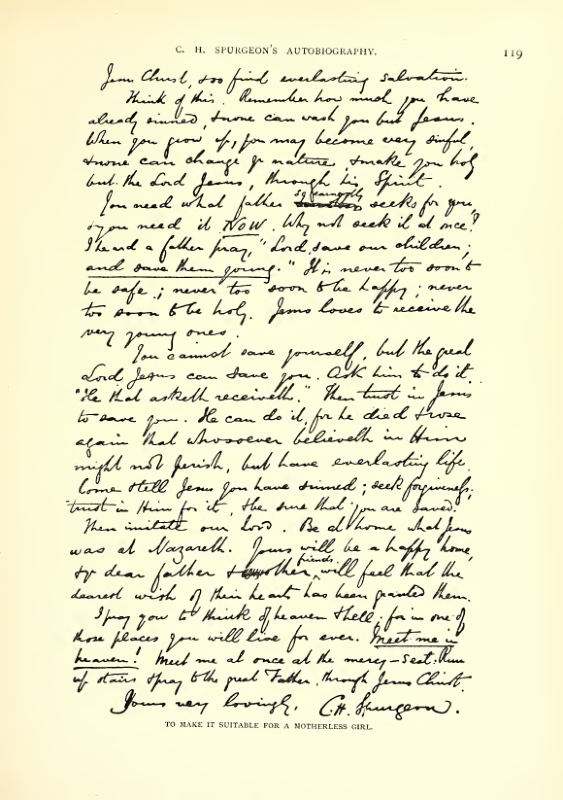 C. H. SPURGEON'S AUTOBIOGRAPHY. 119
Jesus Christ, & so find everlasting salvation.
Think of this. Remember how much you have
already sinned, & none can wash you but Jesus.
When you grow up, you may become very sinful,
& none can change yr nature & make you holy
but the Lord Jesus, through his Spirit.
You need what father so earnestly seeks for you,
& you need it NOW. Why not seek it at once?
I heard a father pray, "Lord, save our children;
and save them young." It is never too soon to
be safe; never too soon to be happy; never
too soon to be holy. Jesus loves to receive the
very young ones.
You cannot save yourself, but the great
Lord Jesus can save you. Ask him to do it.
"He that asketh receiveth." Then trust in Jesus
to save you. He can do it, for he died & rose
again that whosoever believeth in Him
might not perish, but have everlasting life.
Come & tell Jesus you have sinned; seek forgiveness;
trust in Him for it, & be sure that you are saved.
Then imitate our Lord. Be at home what Jesus
was at Nazareth. Yours will be a happy home,
& yr dear father & other friends will feel that the
dearest wish of their hearts has been granted them.
I pray you to think of heaven & hell; for in one of
those places you will live for ever. Meet me in
heaven! Meet me at once at the mercy-seat. Run
up stairs & pray to the great Father, through Jesus Christ.
Yours very lovingly, C. H. Spurgeon.
TO MAKE IT SUITABLE FOR A MOTHERLESS GIRL.